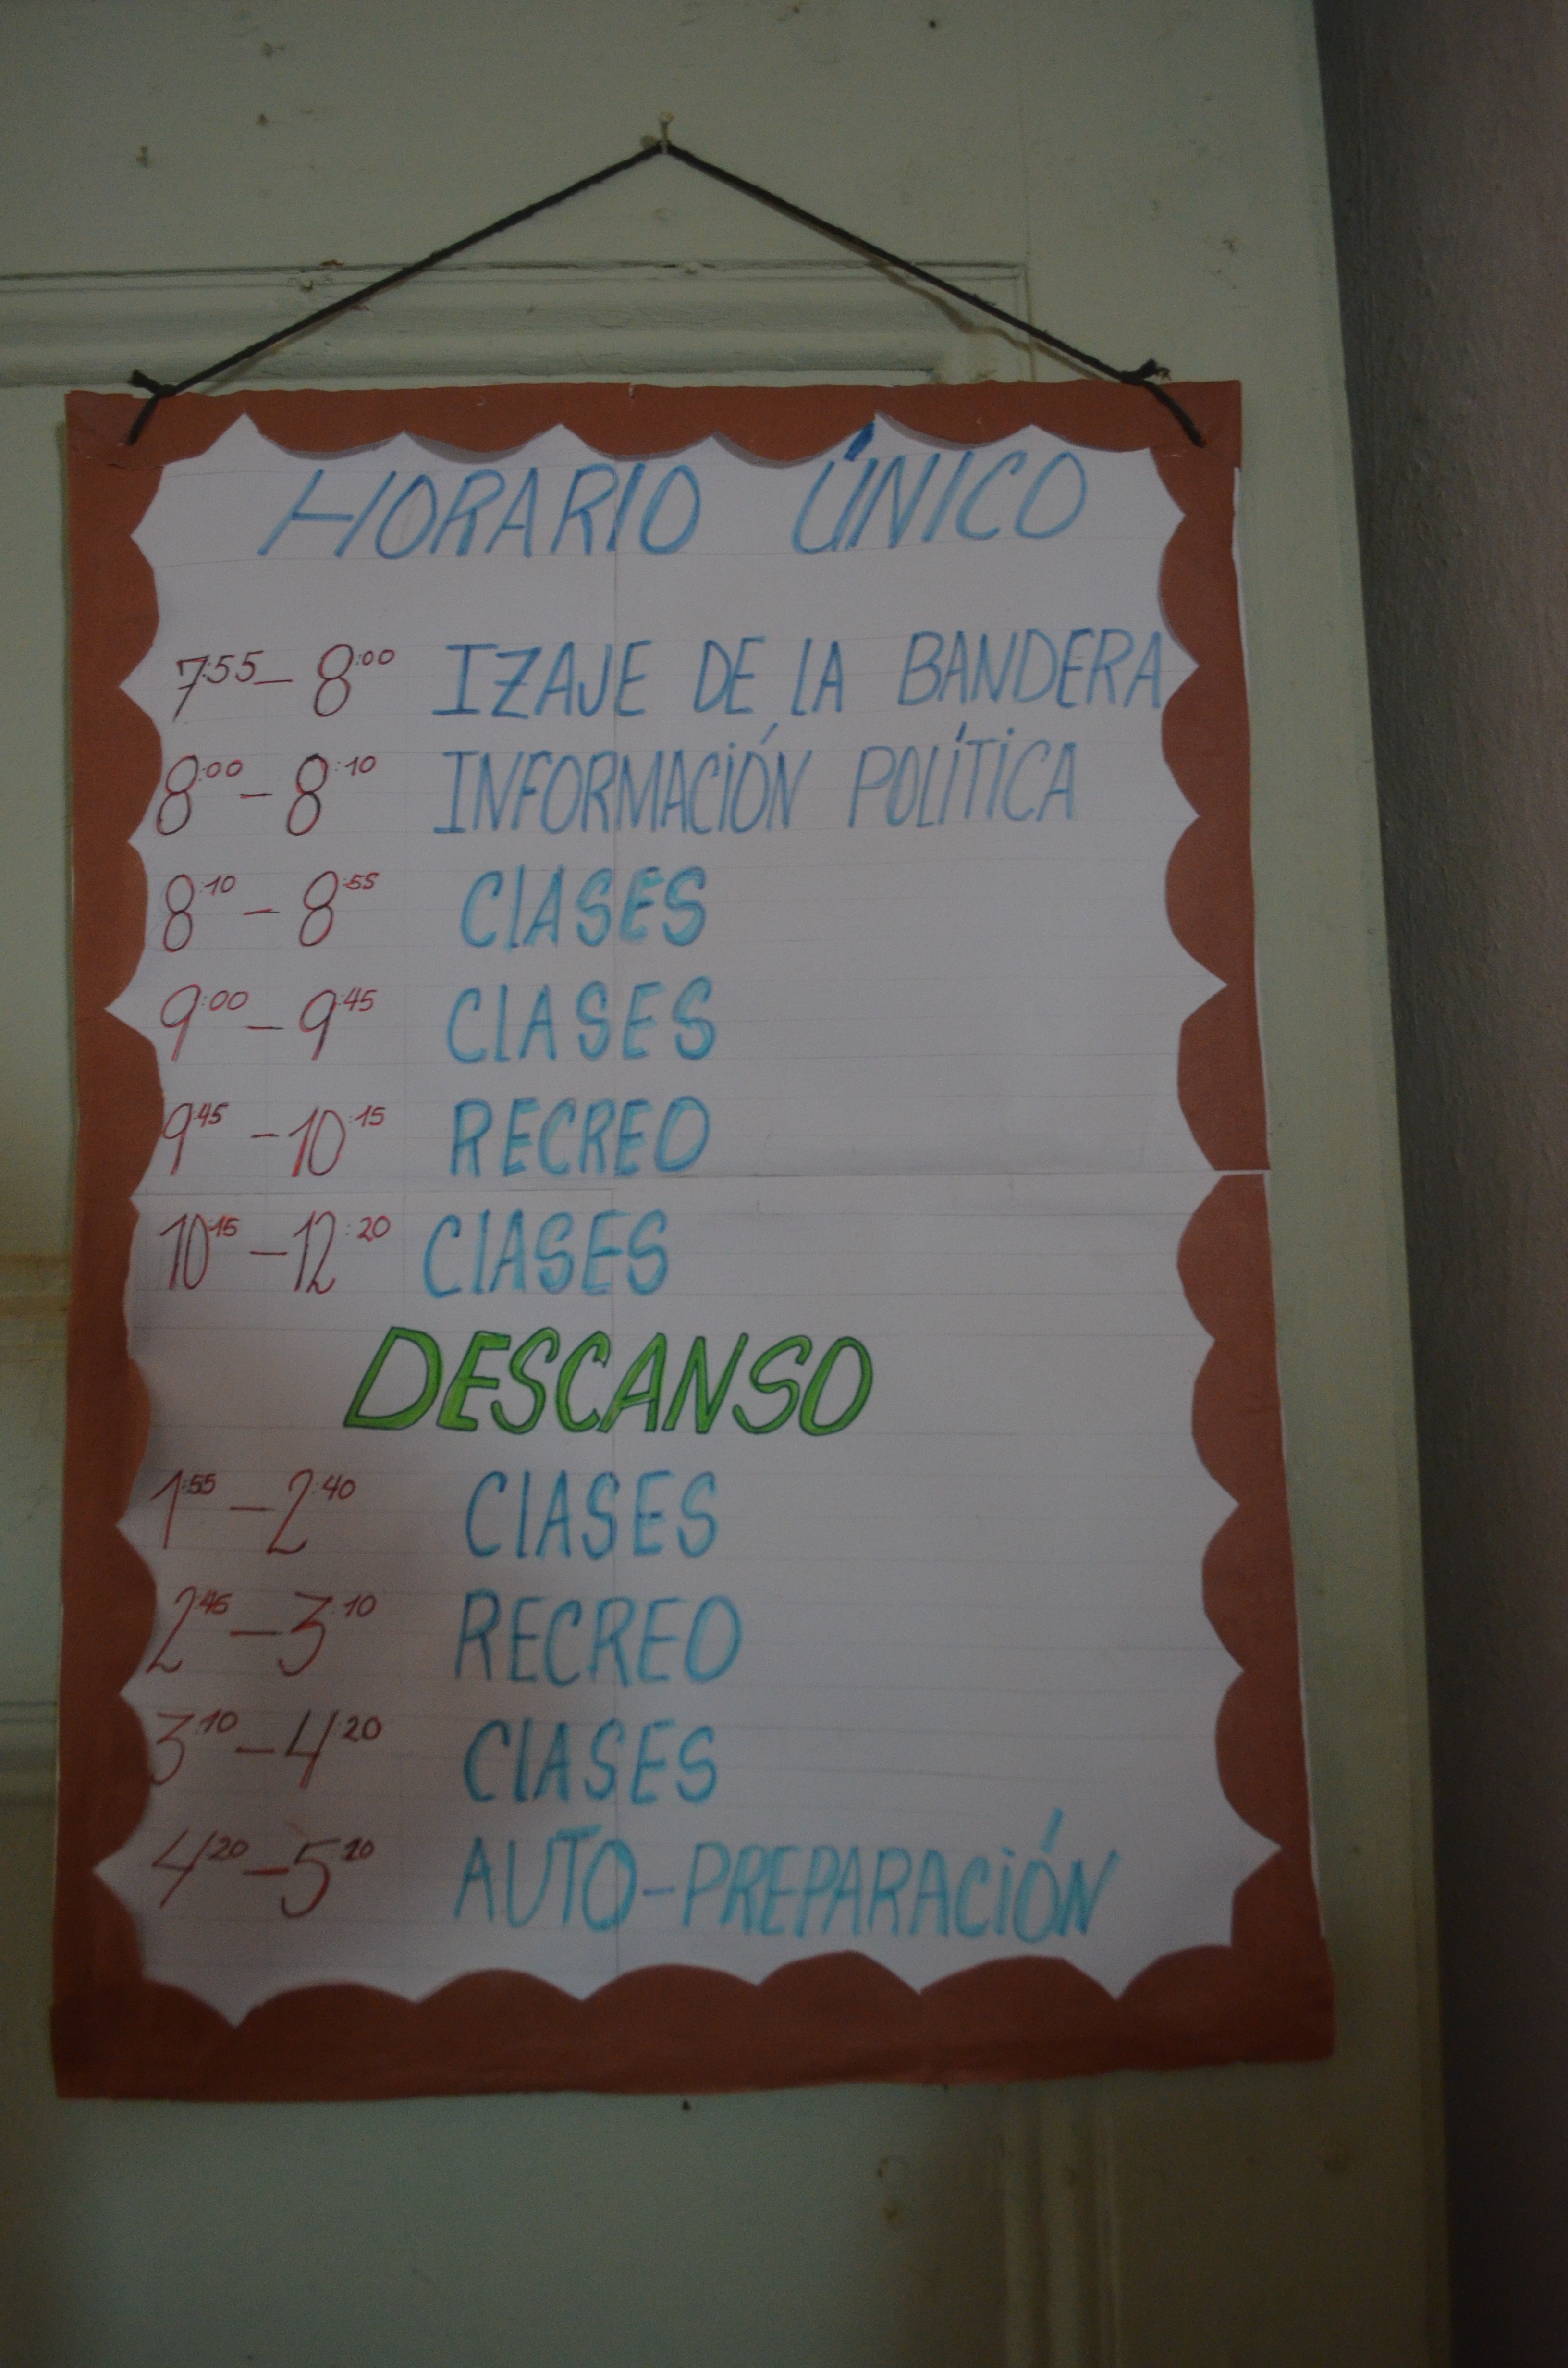 HORARIO ÚNICO
7:55 – 8:00 IZAJE DE LA BANDERA
8:00 – 8:10 INFORMACIÓN POLÍTICA
8:10 – 8:55 CLASES
9:00 – 9:45 CLASES
9:45 – 10:15 RECREO
10:15 – 12:20 CLASES
DESCANSO
1:55 – 2:40 CLASES
2:45 – 3:10 RECREO
3:10 – 4:20 CLASES
4:20 – 5:20 AUTO-PREPARACIÓN